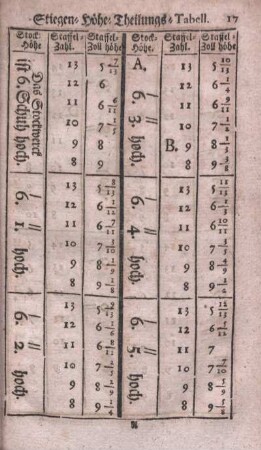 Stiegen-Höhe-Theilungs-Tabell. 17
Stock-Höhe. Staffel-Zahl. Staffel-Zoll höhe Stock-Höhe. Staffel-Zahl. Staffel-Zoll höhe
Das Stockwerck ist 6. Schuh hoch.
13 5 7/13
12 6
11 6 6/11
10 7 1/5
9 8
8 9
6. 1. hoch.
13 5 8/13
12 6 1/12
11 6 7/11
10 7 3/10
9 8 1/9
8 9 1/8
6. 2. hoch.
13 5 9/13
12 6 1/6
11 6 8/11
10 7 2/5
9 8 2/9
8 9 1/4
A. 6. 3. hoch.
13 5 10/13
12 6 1/4
11 6 9/11
10 7 1/2
B. 9 8 1/3
8 9 3/8
6. 4. hoch.
13 5 11/13
12 6 1/3
11 6 10/11
10 7 3/5
9 8 4/9
8 9 1/2
6. 5. hoch.
13 5 12/13
12 6 5/12
11 7
10 7 7/10
9 8 5/9
8 9 5/8